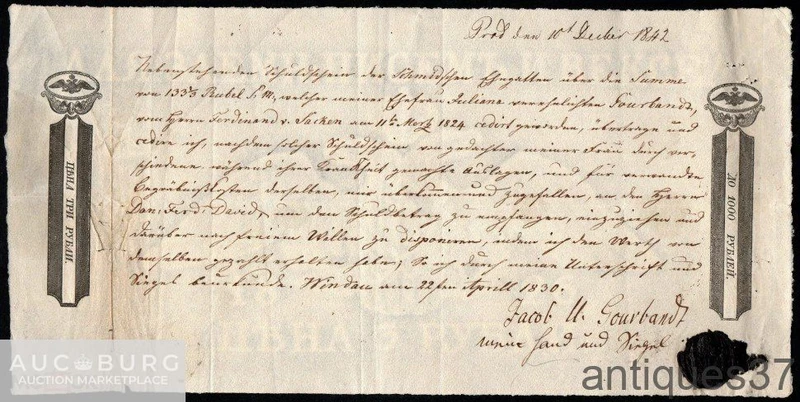 Prod den 10t Decbr 1842
Nebenstehenden Schuldschein der Schmidschen Ehegatten über die Summe
von 133⅓ Rubel S.M., welcher meiner Ehefrau Juliane verehelichten Gourbandt,
vom Herrn Ferdinand v. Sacken am 11ten März 1824 cedirt geworden, übertrage und
cedire ich, nachdem solcher Schuldschein von gedachter meiner Frau durch ver-
schiedene während ihrer Krankheit gemachte Auslagen, und für verwandte
Begräbnißkosten derselben, mir überkommen und zugefallen, an den Herrn
Dan: Ferd: David, um den Schuldbetrag zu empfangen, einzuziehen und
darüber nach freiem Willen zu disponiren, indem ich den Werth von
demselben gezahlt erhalten habe; So ich durch meine Unterschrift und
Siegel beurkunde. Windau am 22sten Aprill 1830.
Jacob U. Gourbandt
meine Hand und Siegel
ЦѢНА ТРИ РУБЛИ.
ДО 1000 РУБЛЕЙ.
AUC BURG
AUCTION MARKETPLACE
antiques37